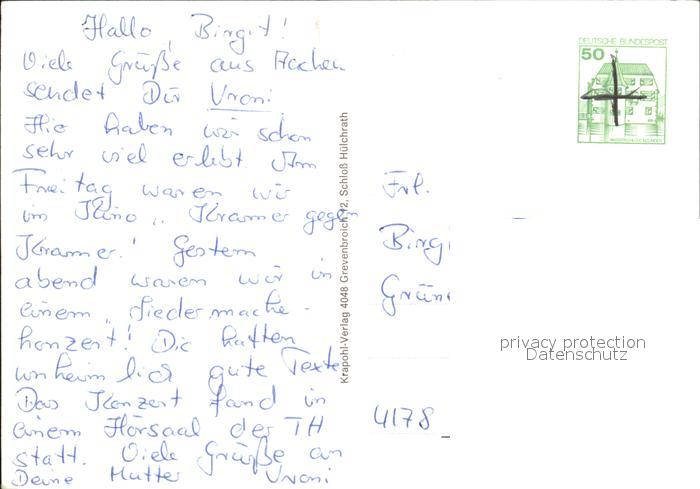 Hallo, Birgit!
Viele Grüße aus Aachen
sendet Dir Vroni
Hier haben wir schon
sehr viel erlebt. Am
Freitag waren wir
im Kino „Kramer gegen
Kramer". Gestern
abend waren wir in
einem „Liedermache-
konzert! Die hatten
unheimlich gute Texte
Das Konzert fand in
einem Hörsaal der TH
statt. Viele Grüße an
Deine Mutter Vroni
Krapohl-Verlag 4048 Grevenbroich 12, Schloß Hülchrath
DEUTSCHE BUNDESPOST
50
Frl.
Birgi
Grün
4178
privacy protection
Datenschutz